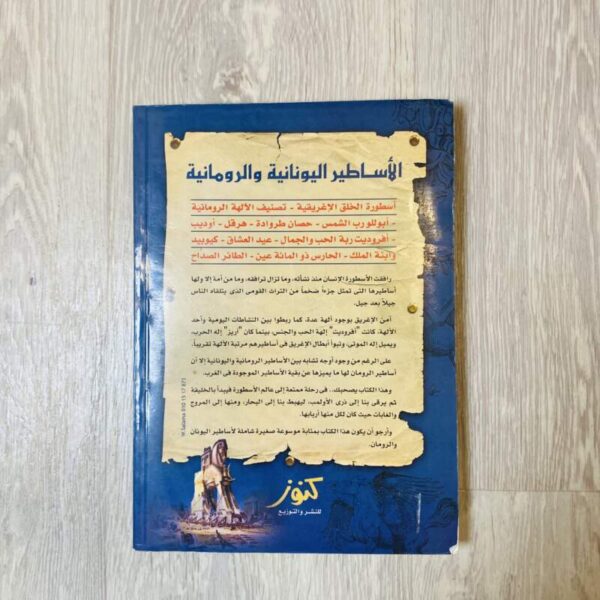 الأساطير اليونانية والرومانية
أسطورة الخلق الإغريقية - تصنيف الآلهة الرومانية
- أبوللو رب الشمس - حصان طروادة - هرقل - أوديب
- أفروديت ربة الحب والجمال - عيد العشاق - كيوبيد
وابنة الملك - الحارس ذو المائة عين - الطائر الصداح
رافقت الأسطورة الإنسان منذ نشأته، وما تزال ترافقه، وما من أمة إلا ولها
أساطيرها التى تمثل جزءاً ضخماً من التراث القومى الذى يتلقاه الناس
جيلاً بعد جيل.
آمن الإغريق بوجود آلهة عدة، كما ربطوا بين النشاطات اليومية وأحد
الآلهة. كانت "أفروديت" إلهة الحب والجنس، بينما كان "أريز" إله الحرب،
ويميل إله الموتى، وتبوأ أبطال الإغريق فى أساطيرهم مرتبة الآلهة تقريباً.
على الرغم من وجود أوجه تشابه بين الأساطير الرومانية واليونانية إلا أن
أساطير الرومان لها ما يميزها عن بقية الأساطير الموجودة فى الغرب.
وهذا الكتاب يصحبك.. فى رحلة ممتعة إلى عالم الأسطورة فيبدأ بالخليقة
ثم يرقى بنا إلى ذرى الأولمب، ليهبط بنا إلى البحار، ومنها إلى المروج
والغابات حيث كان لكل منها أربابها.
وأرجو أن يكون هذا الكتاب بمثابة موسوعة صغيرة شاملة لأساطير اليونان
والرومان.
كنوز
للنشر والتوزيع